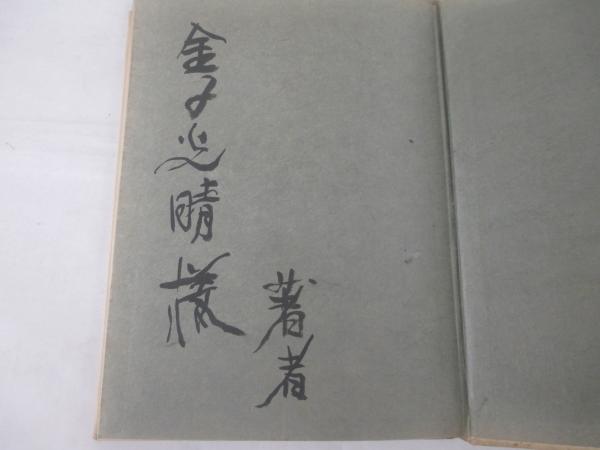 金子光晴様
著者